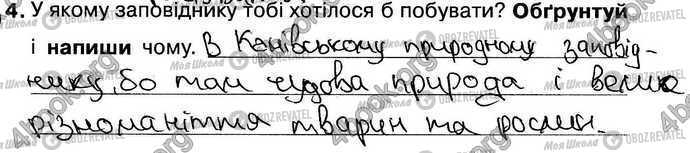 4. У якому заповіднику тобі хотілося б побувати? Обґрунтуй
і напиши чому. В Канівському природному заповід-
нику, бо там чудова природа і велике
різноманіття тварин та рослин.